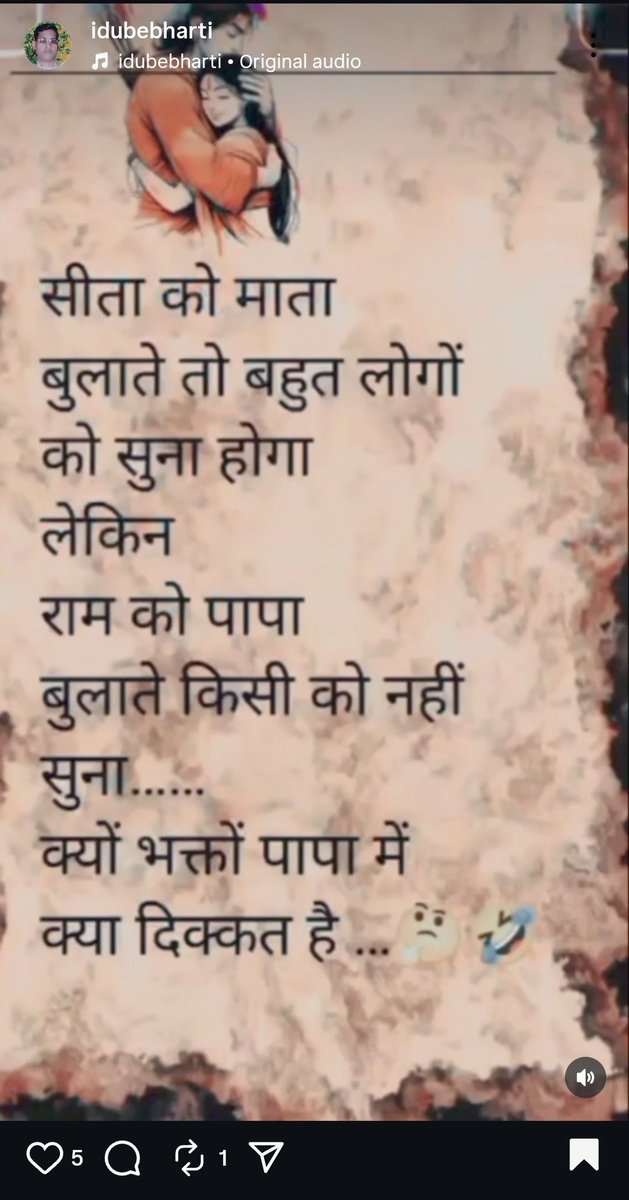 idubebharti
idubebharti • Original audio
सीता को माता
बुलाते तो बहुत लोगों
को सुना होगा
लेकिन
राम को पापा
बुलाते किसी को नहीं
सुना......
क्यों भक्तों पापा में
क्या दिक्कत है ...🤔🤣
5
1